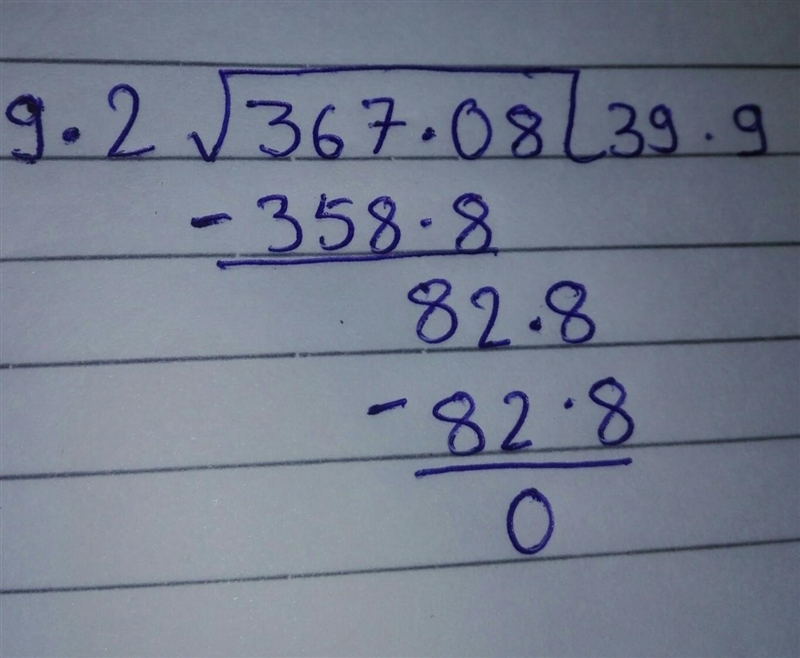 9.2 √367.08 39.9
- 358.8
82.8
- 82.8
0